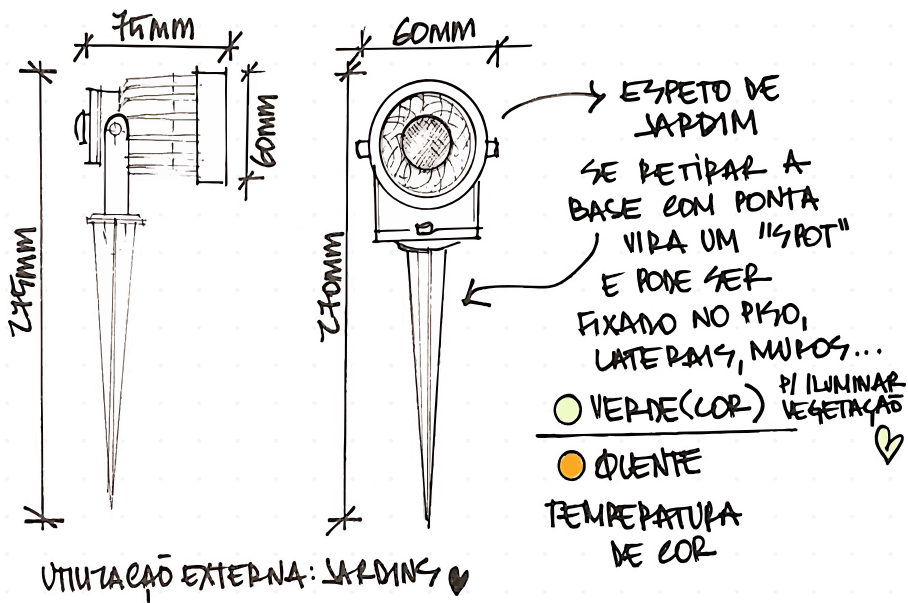 75MM
60MM
60MM
275MM
270MM
ESPETO DE
JARDIM
SE RETIRAR A
BASE COM PONTA
VIRA UM "SPOT"
E PODE SER
FIXADO NO PISO,
LATERAIS, MUROS...
VERDE(COR) P/ ILUMINAR
VEGETAÇÃO
QUENTE
TEMPERATURA
DE COR
UTILIZAÇÃO EXTERNA: JARDINS